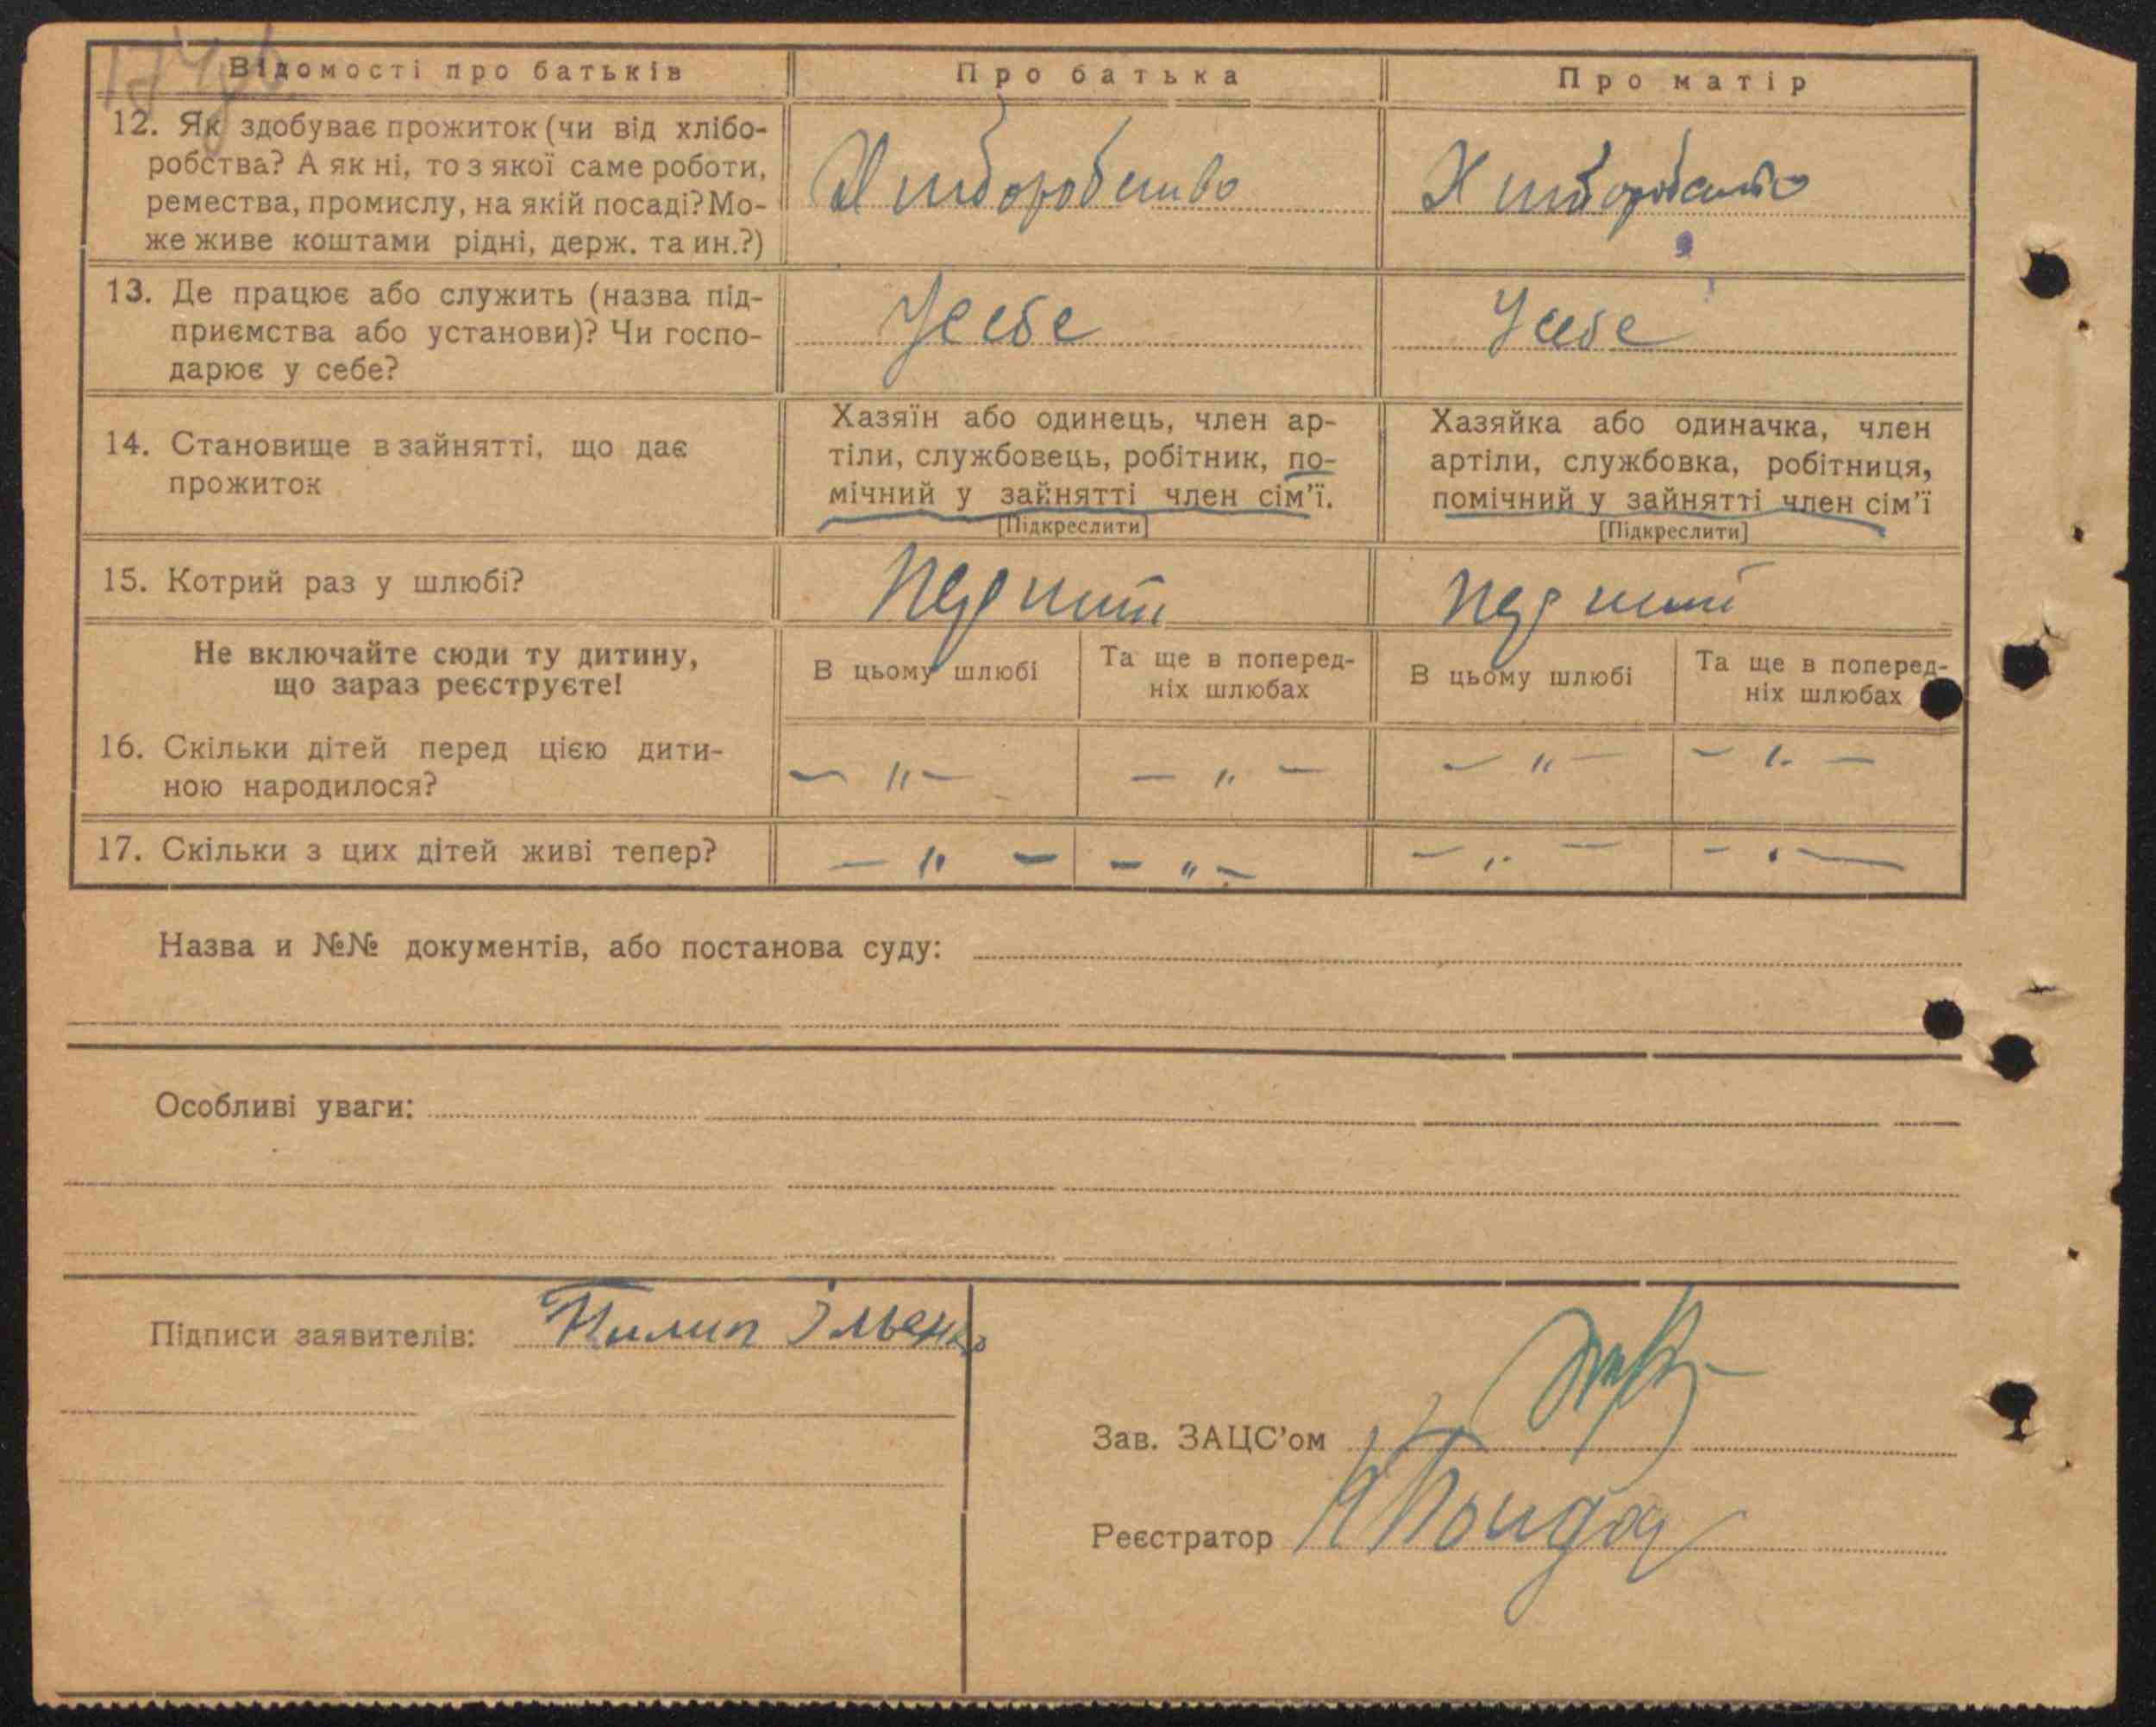 Відомості про батьків
Про батька
Про матір
12. Як здобуває прожиток (чи від хлібо-
робства? А як ні, то з якої саме роботи,
ремества, промислу, на якій посаді? Мо-
же живе коштами рідні, держ. та ин.?)
Хліборобство
Хліборобство
13. Де працює або служить (назва під-
приємства або установи)? Чи госпо-
дарює у себе?
У себе
У себе
14. Становище в зайнятті, що дає
прожиток
Хазяїн або одинець, член ар-
тіли, службовець, робітник, по-
мічний у зайнятті член сім'ї.
[Підкреслити]
Хазяйка або одиначка, член
артіли, службовка, робітниця,
помічний у зайнятті член сім'ї
[Підкреслити]
15. Котрий раз у шлюбі?
Перший
Перший
Не включайте сюди ту дитину,
що зараз реєструєте!
В цьому шлюбі
Та ще в поперед-
ніх шлюбах
В цьому шлюбі
Та ще в поперед-
ніх шлюбах
16. Скільки дітей перед цією дити-
ною народилося?
— " —
— " —
— " —
— " —
17. Скільки з цих дітей живі тепер?
— " —
— " —
— " —
— " —
Назва и №№ документів, або постанова суду:
Особливі уваги:
Підписи заявителів: Пилип Ільенко
Зав. ЗАЦС'ом
Реєстратор